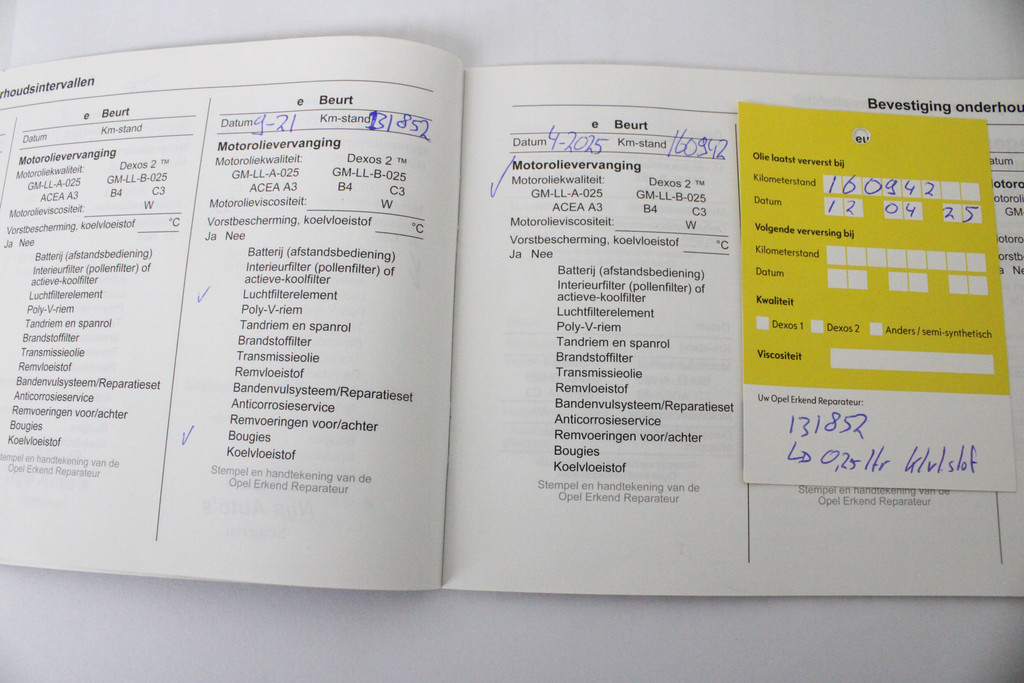 rhoudsintervallen
e Beurt
Datum Km-stand
Motorolievervanging
Motoroliekwaliteit: Dexos 2 ™
GM-LL-A-025 GM-LL-B-025
ACEA A3 B4 C3
Motorolieviscositeit: W
Vorstbescherming, koelvloeistof °C
Ja Nee
Batterij (afstandsbediening)
Interieurfilter (pollenfilter) of
actieve-koolfilter
Luchtfilterelement
Poly-V-riem
Tandriem en spanrol
Brandstoffilter
Transmissieolie
Remvloeistof
Bandenvulsysteem/Reparatieset
Anticorrosieservice
Remvoeringen voor/achter
Bougies
Koelvloeistof
tempel en handtekening van de
Opel Erkend Reparateur
e Beurt
Datum 9-21 Km-stand 131852
Motorolievervanging
Motoroliekwaliteit: Dexos 2 ™
GM-LL-A-025 GM-LL-B-025
ACEA A3 B4 C3
Motorolieviscositeit: W
Vorstbescherming, koelvloeistof °C
Ja Nee
Batterij (afstandsbediening)
Interieurfilter (pollenfilter) of
actieve-koolfilter
Luchtfilterelement
Poly-V-riem
Tandriem en spanrol
Brandstoffilter
Transmissieolie
Remvloeistof
Bandenvulsysteem/Reparatieset
Anticorrosieservice
Remvoeringen voor/achter
Bougies
Koelvloeistof
Stempel en handtekening van de
Opel Erkend Reparateur
e Beurt
Datum 4-2025 Km-stand 160942
Motorolievervanging
Motoroliekwaliteit: Dexos 2 ™
GM-LL-A-025 GM-LL-B-025
ACEA A3 B4 C3
Motorolieviscositeit: W
Vorstbescherming, koelvloeistof °C
Ja Nee
Batterij (afstandsbediening)
Interieurfilter (pollenfilter) of
actieve-koolfilter
Luchtfilterelement
Poly-V-riem
Tandriem en spanrol
Brandstoffilter
Transmissieolie
Remvloeistof
Bandenvulsysteem/Reparatieset
Anticorrosieservice
Remvoeringen voor/achter
Bougies
Koelvloeistof
Stempel en handtekening van de
Opel Erkend Reparateur
Bevestiging onderhou
Olie laatst ververst bij
Kilometerstand 160942
Datum 12 04 25
Volgende verversing bij
Kilometerstand
Datum
Kwaliteit
Dexos 1 Dexos 2 Anders / semi-synthetisch
Viscositeit
Uw Opel Erkend Reparateur:
131852
0,25 ltr
Stempel en handtekening van de
Opel Erkend Reparateur
atum
otoro
GM-